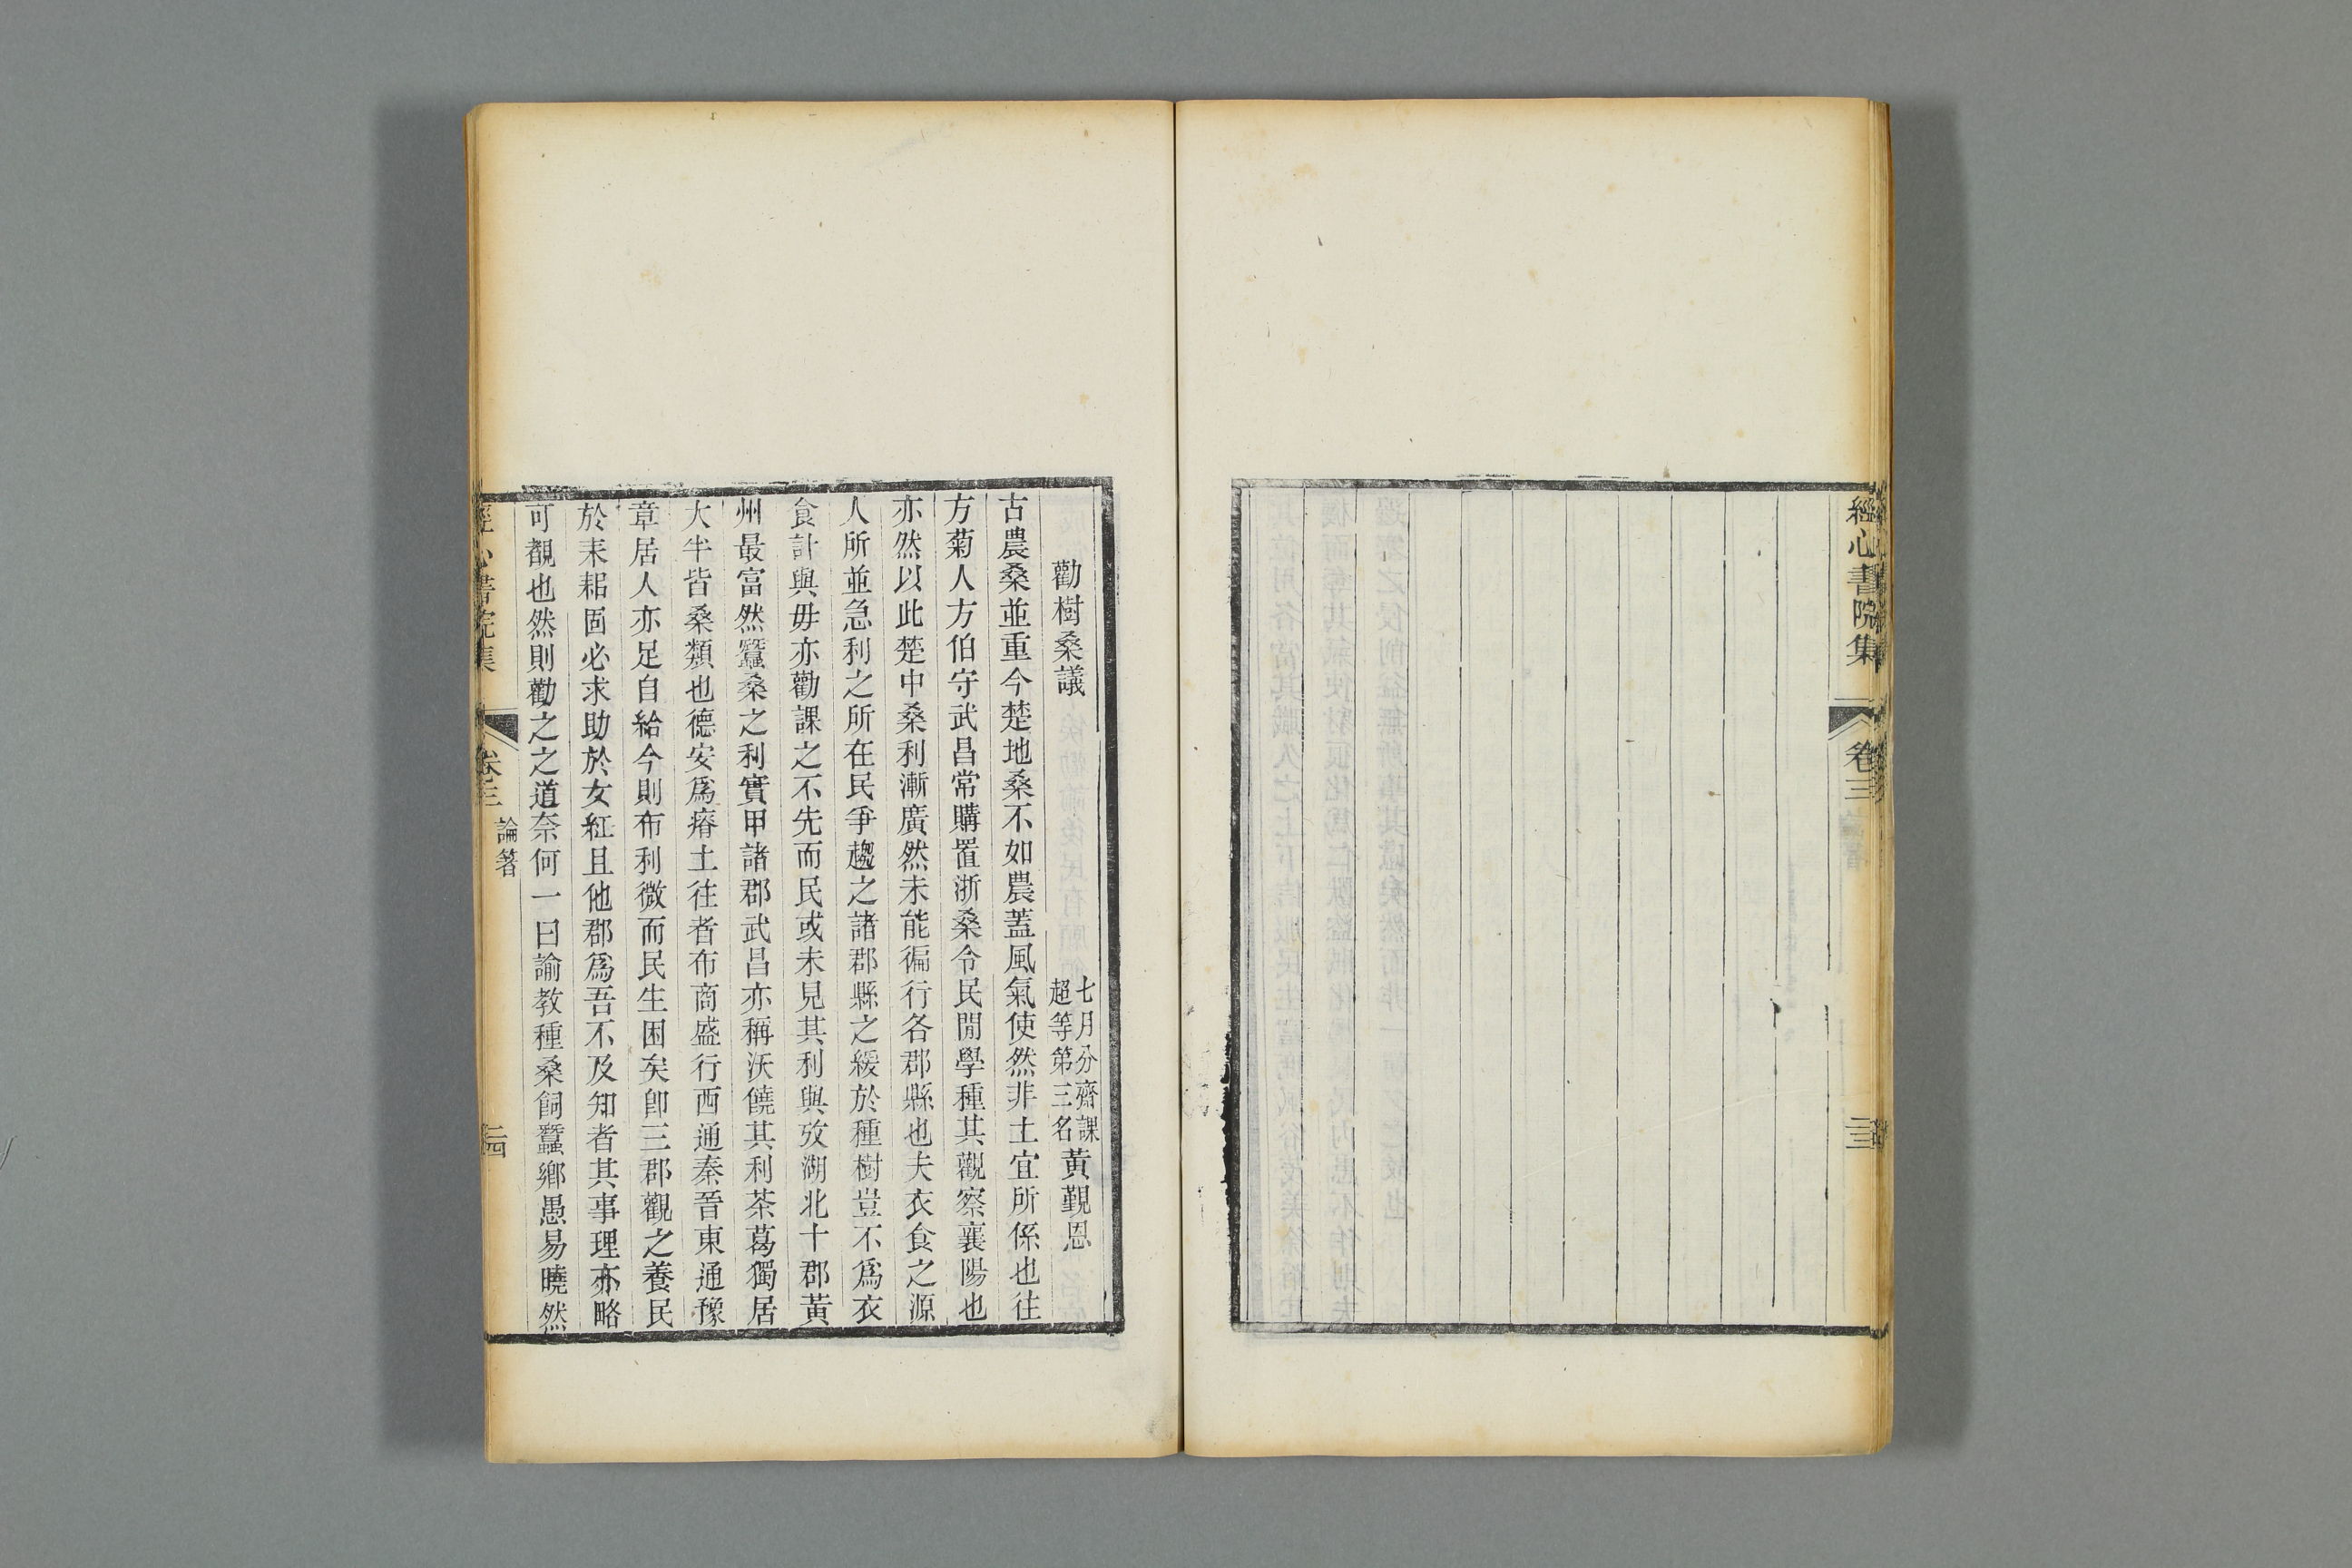 經心書院集
卷三
二三
勸樹桑議
七月分齋課
超等第三名
黃覲恩
古農桑並重今楚地桑不如農蓋風氣使然非土宜所係也往
方菊人方伯守武昌常購置浙桑令民閒學種其觀察襄陽也
亦然以此楚中桑利漸廣然未能徧行各郡縣也夫衣食之源
人所並急利之所在民爭趨之諸郡縣之緩於種樹豈不爲衣
食計與毋亦勸課之不先而民或未見其利與攷湖北十郡黃
州最富然蠶桑之利實甲諸郡武昌亦稱沃饒其利茶葛獨居
大半皆桑類也德安爲瘠土往者布商盛行西通秦晉東通豫
章居人亦足自給今則布利微而民生困矣卽三郡觀之養民
於耒耜固必求助於女紅且他郡爲吾不及知者其事理亦略
可覩也然則勸之之道奈何一曰諭教種桑飼蠶鄉愚易曉然
經心書院集
卷三
論箸
二四